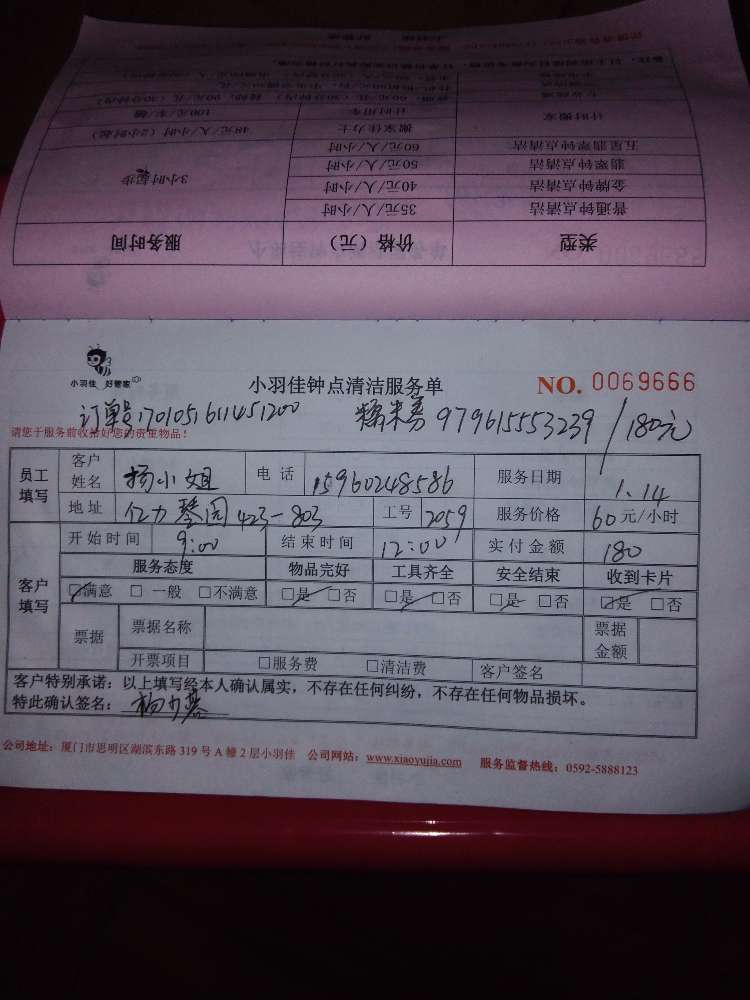 类型 价格（元） 服务时间
普通钟点清洁 35元/人/小时 3小时起步
金牌钟点清洁 40元/人/小时
翡翠钟点清洁 50元/人/小时
五星翡翠钟点清洁 60元/人/小时
计时搬家 搬家佳力士 48元/人/小时（2小时起）
计时用车 100元/车/趟
小羽佳 好管家
小羽佳钟点清洁服务单 NO. 0069666
订单号170105161145 1200 糯米券979615553239/180元
请您于服务前收拾好您的贵重物品！
员工填写 客户姓名 杨小姐 电话 15960248586 服务日期 1.14
地址 亿力琴园423-803 工号 2059 服务价格 60元/小时
客户填写 开始时间 9:00 结束时间 12:00 实付金额 180
服务态度 物品完好 工具齐全 安全结束 收到卡片
☑满意 □一般 □不满意 ☑是 □否 ☑是 □否 ☑是 □否 ☑是 □否
票据 票据名称 票据金额
开票项目 □服务费 □清洁费 客户签名
客户特别承诺：以上填写经本人确认属实，不存在任何纠纷，不存在任何物品损坏。
特此确认签名：
公司地址：厦门市思明区湖滨东路319号A幢2层小羽佳 公司网站：www.xiaoyujia.com 服务监督热线：0592-5888123